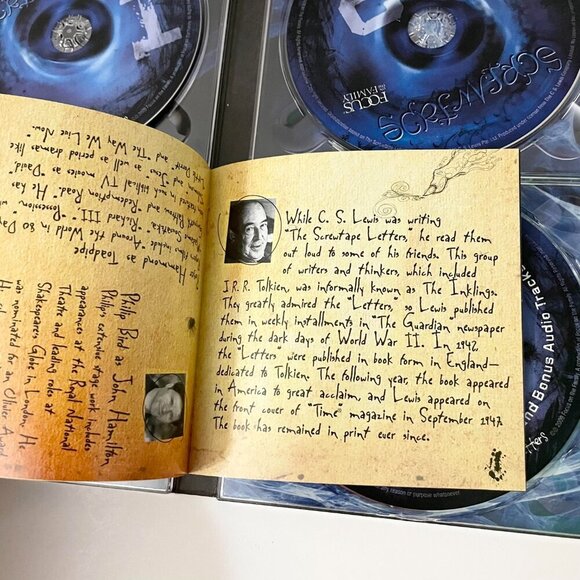 While C. S. Lewis was writing
"The Screwtape Letters," he read them
out loud to some of his friends. This group
of writers and thinkers, which included
J. R. R. Tolkien, was informally known as The Inklings.
They greatly admired the "Letters," so Lewis published
them in weekly installments in "The Guardian newspaper
during the dark days of World War II. In 1942
the "Letters were published in book form in England—
dedicated to Tolkien. The following year, the book appeared
in America to great acclaim, and Lewis appeared on
the front cover of "Time" magazine in September 1947.
The book has remained in print ever since.
Philip Bird as John Hamilton
Philip's extensive stage work includes
appearances at the Royal National
Theatre and leading roles at
Shakespeare's Globe in London. He
was nominated for an Olivier Award
Hammond as Toadpipe
"Around the World in 80
"Richard III"
"Redemption Road." He has
TV movies as "David"
as well as period dramas like
and "The Way We Live Now."
FOCUS
ON THE
FAMILY
SCREWTAPE
nd Bonus Audio Tracks